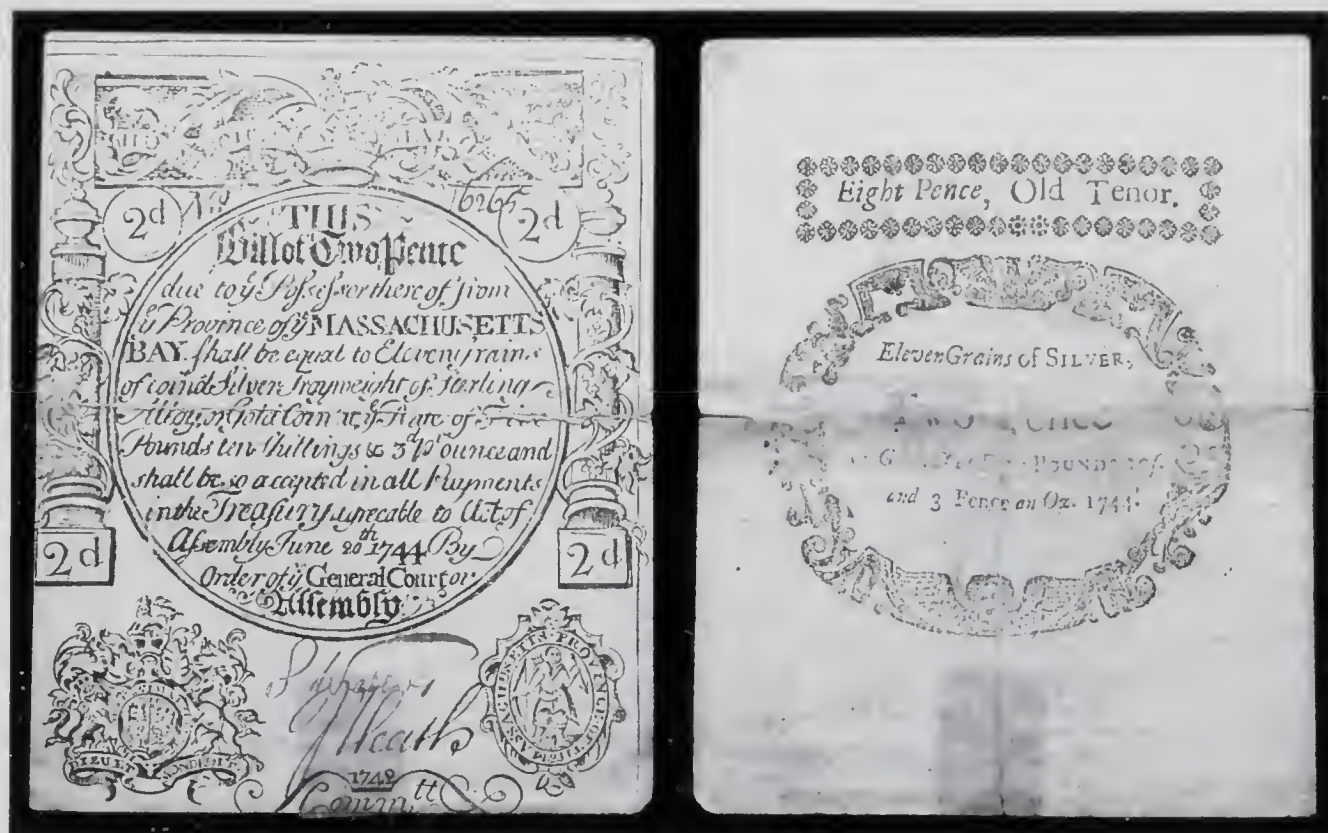 2d
6265
2d
THIS
Bill of Two Pence
due to yᵉ Possessor thereof from
yᵉ Province of yᵉ MASSACHUSETTS
BAY shall be equal to Eleven grains
of coin'd Silver Troyweight of Sterling
Alloy or Gold Coin at yᵉ Rate of Five
Pounds ten shillings & 3ᵈ pʳ ounce and
shall be so accepted in all Payments
in the Treasury agreeable to Act of
Assembly June 20ᵗʰ 1744 By
Order of yᵉ General Court or
Assembly
2d
2d
DIEU ET MON DROIT
MASSACHUSETTS PROVINCE
J Heath
1742
Commᵗᵗ
Eight Pence, Old Tenor.
Eleven Grains of SILVER,
POUNDS
and 3 Pence an Oz. 1744.